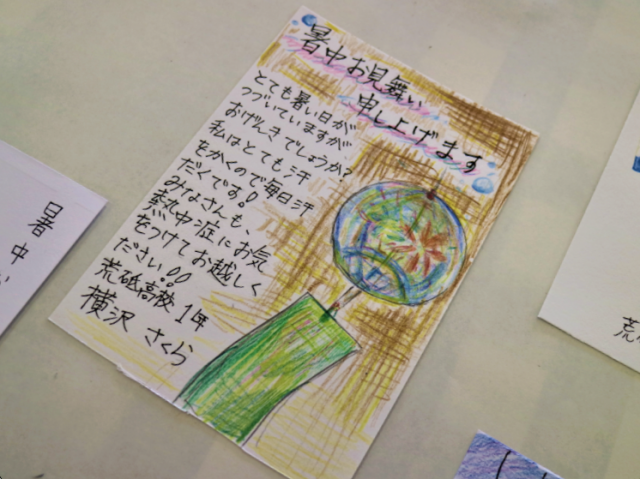 暑中お見舞い
申し上げます
とても暑い日が
つづいていますが
おげんきでしょうか?
私はとても汗
をかくので毎日汗
だくです!!
みなさんも、
熱中症にお気
をつけてお越しく
ださい!!
荒砥高校 1年
横沢 さくら
暑
中
荒